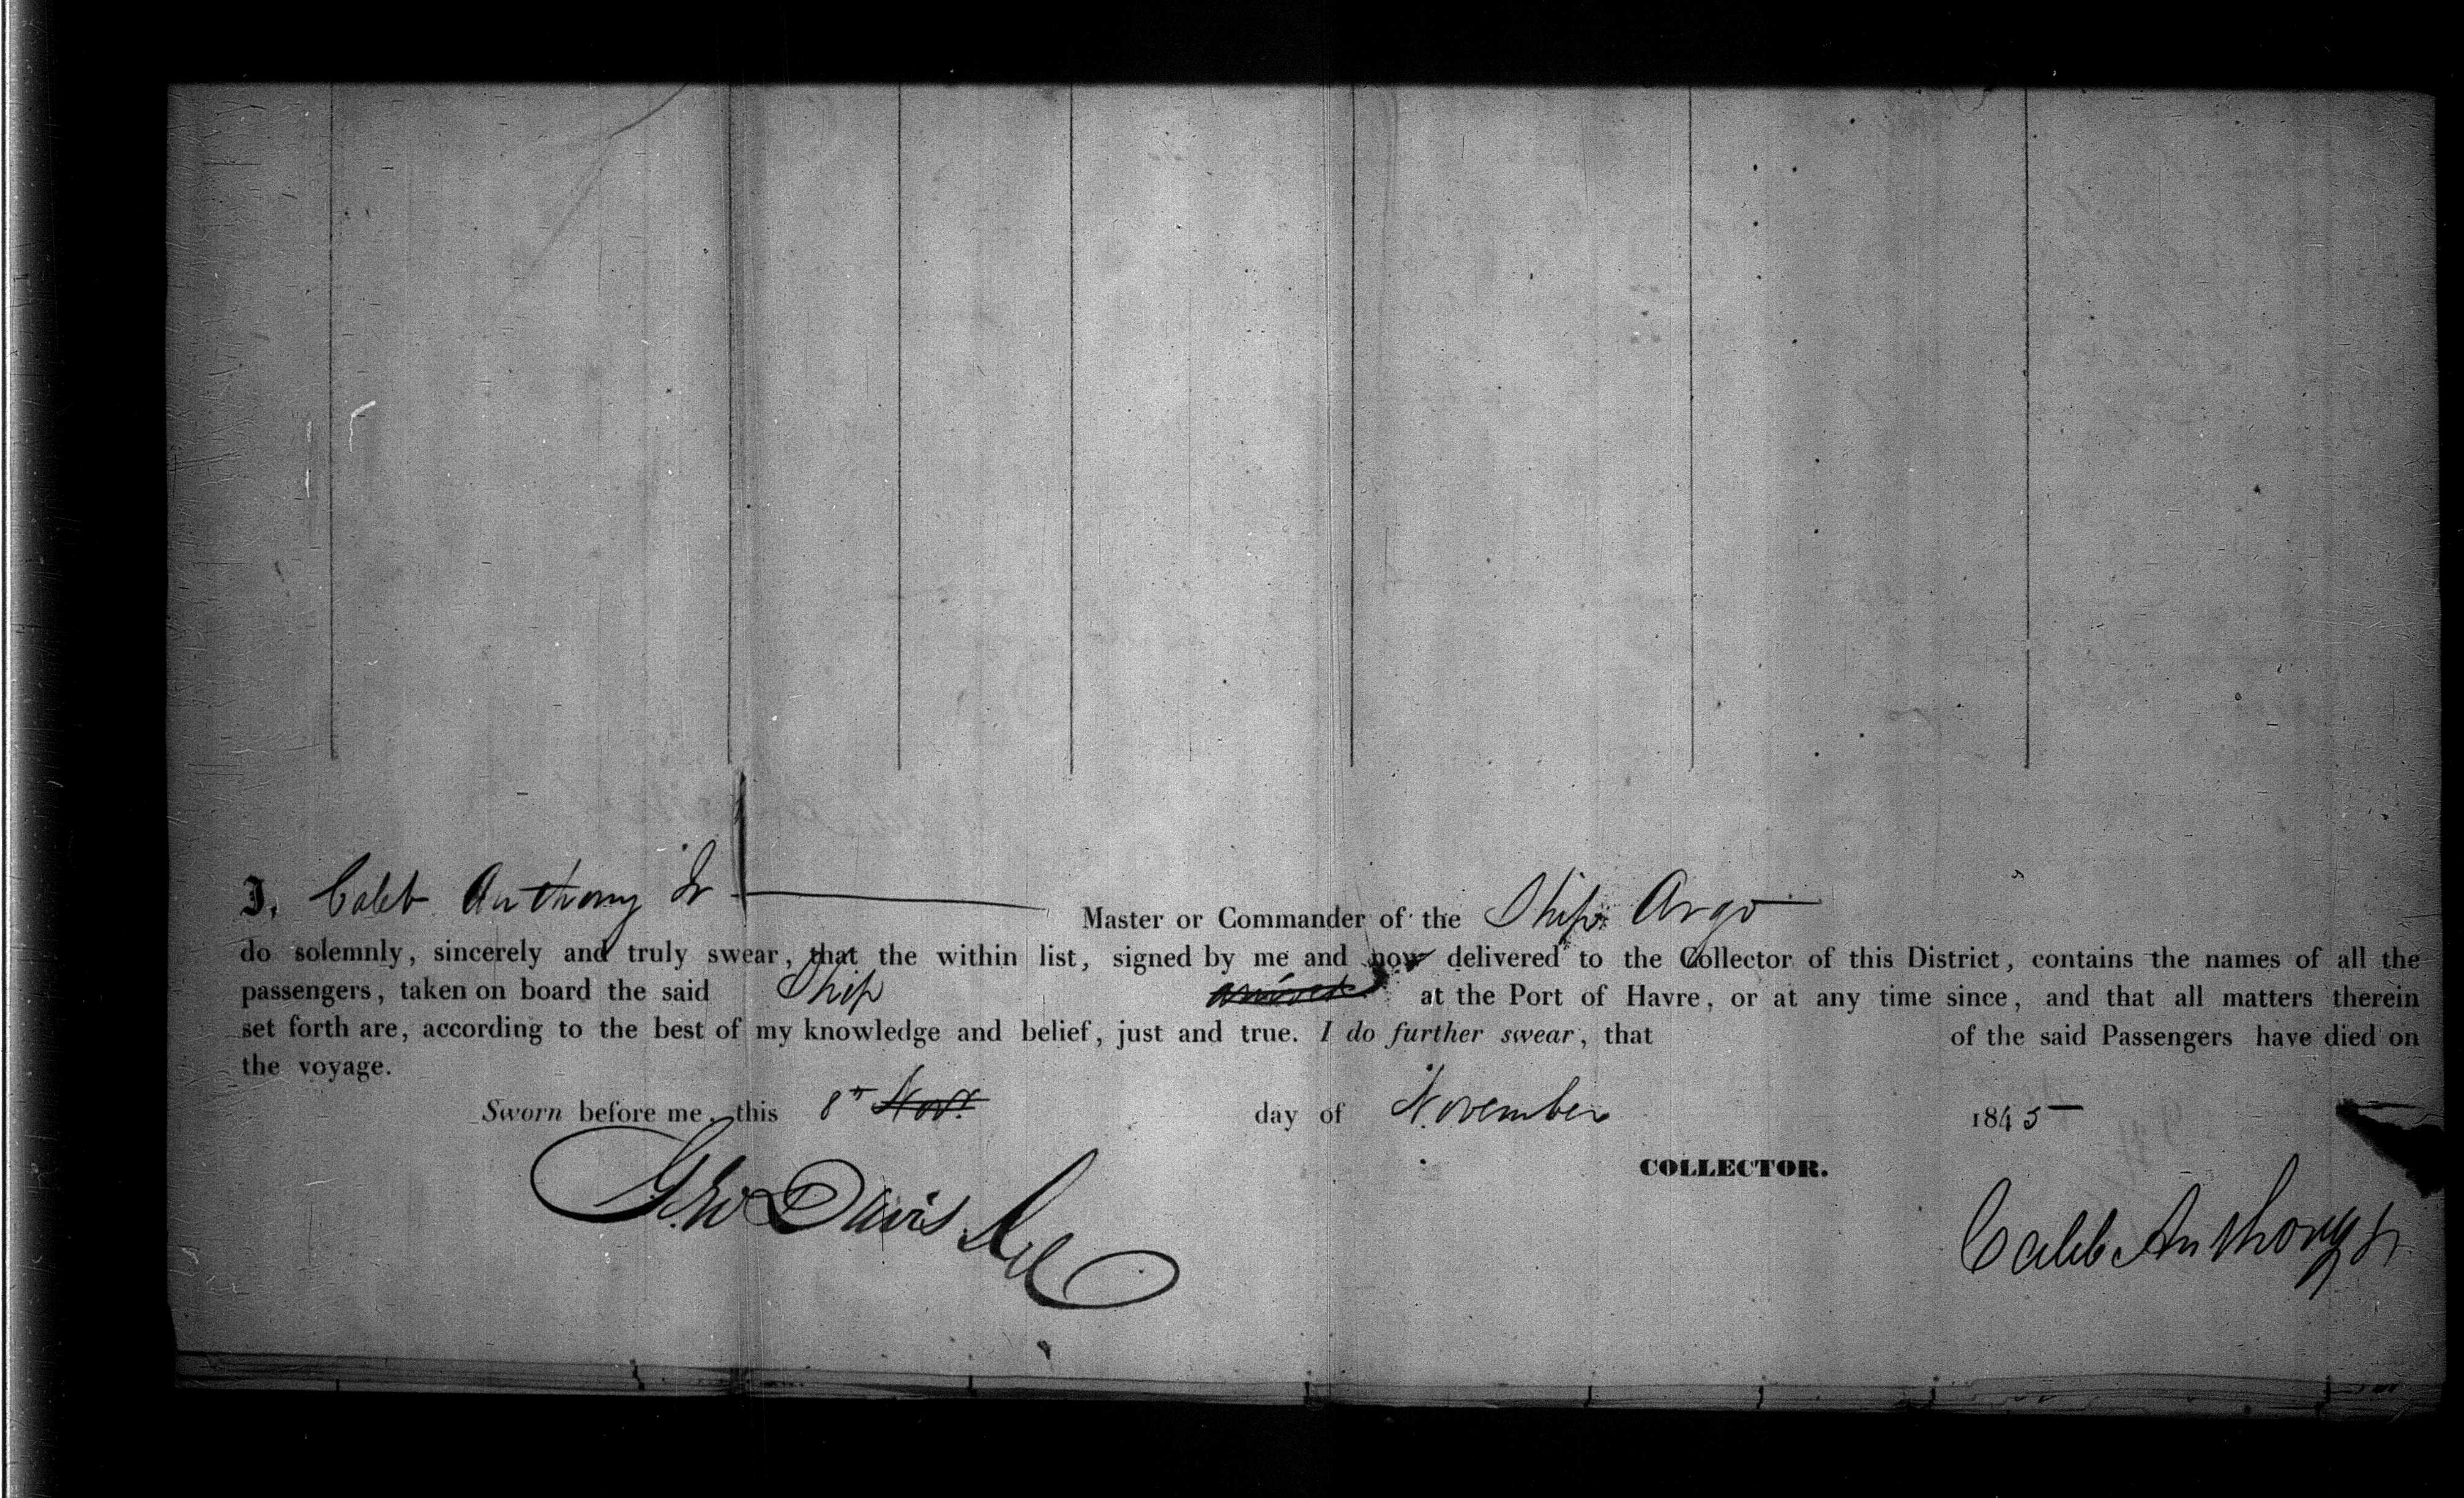 I, Caleb Anthony Jr Master or Commander of the Ship Argo
do solemnly, sincerely and truly swear, that the within list, signed by me and now delivered to the Collector of this District, contains the names of all the
passengers, taken on board the said Ship at the Port of Havre, or at any time since, and that all matters therein
set forth are, according to the best of my knowledge and belief, just and true. I do further swear, that of the said Passengers have died on
the voyage.
Sworn before me, this 8th Novr. day of November 1845
COLLECTOR.
Geo Davis
Caleb Anthony Jr